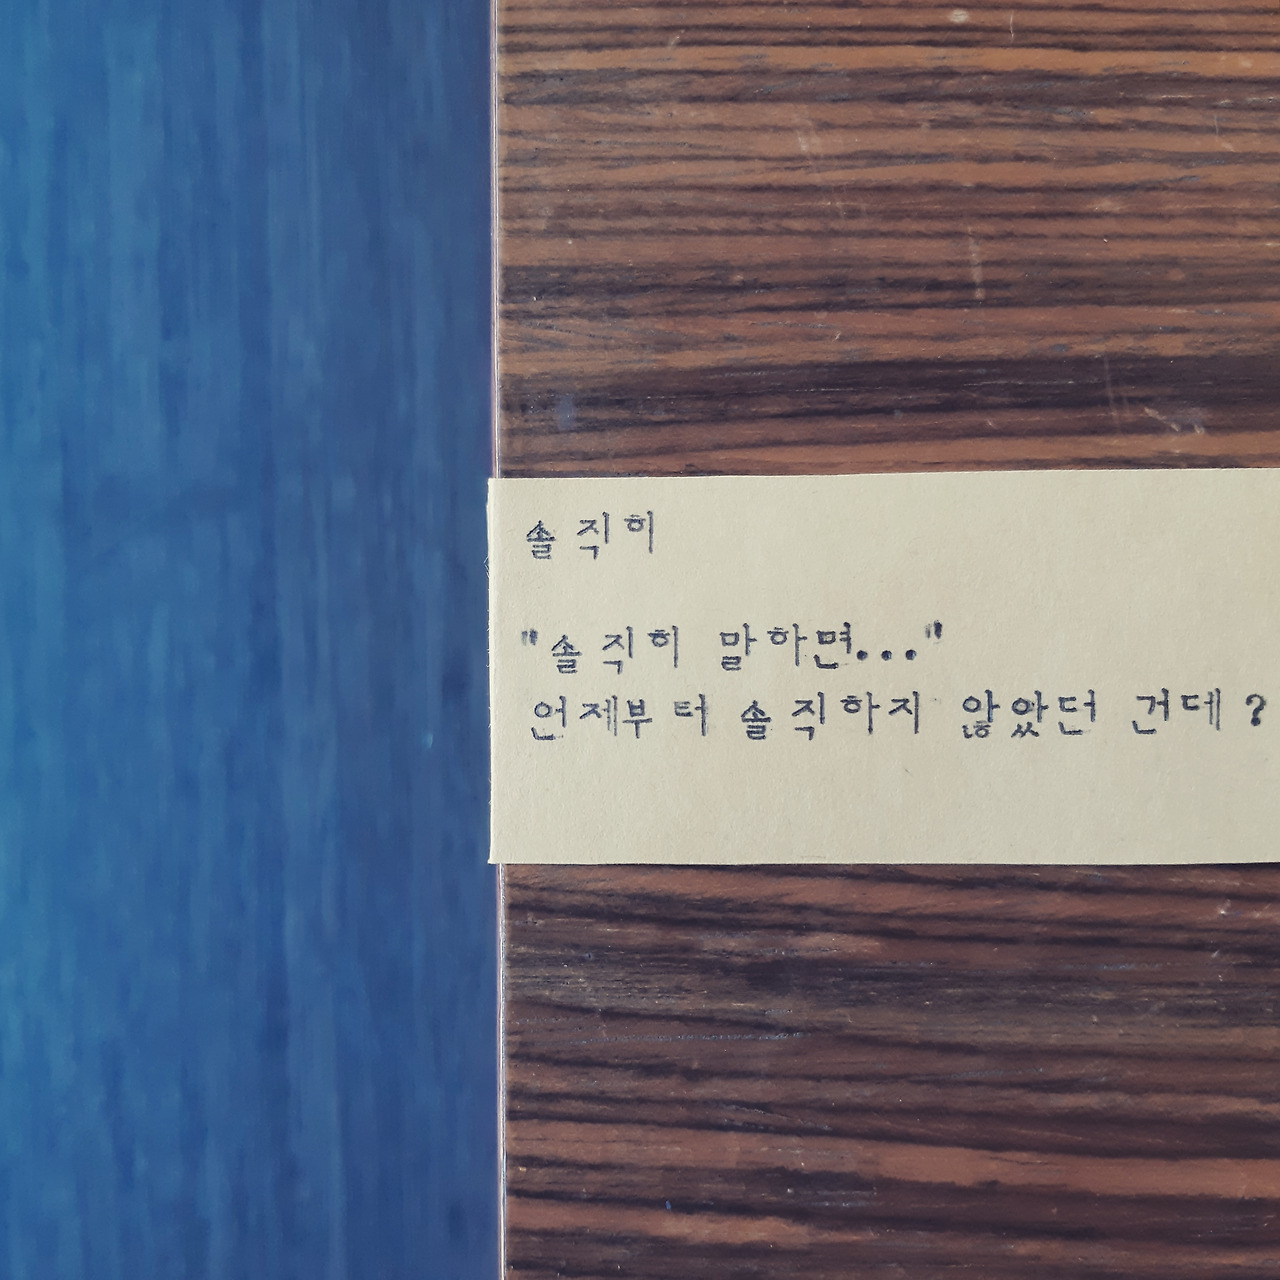 솔직히
"솔직히 말하면..."
언제부터 솔직하지 않았던 건데?